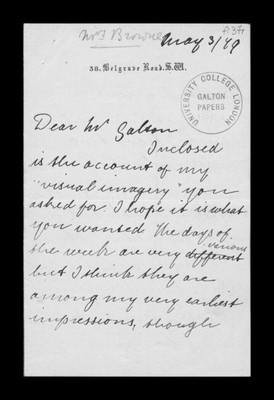 Mrs Browne
May 3/79
38, Belgrave Road. S.W.
UNIVERSITY COLLEGE LONDON
GALTON
PAPERS
Dear Mr Galton
Inclosed
is the account of my
"visual imagery" you
asked for. I hope it is what
you wanted. The days of
the week are very different
various
but I think they are
among my very earliest
impressions, though